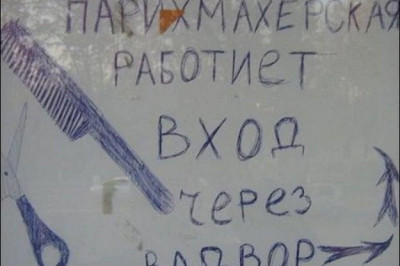 ПАРИХМАХЕРСКАЯ
РАБОТИЕТ
ВХОД
через